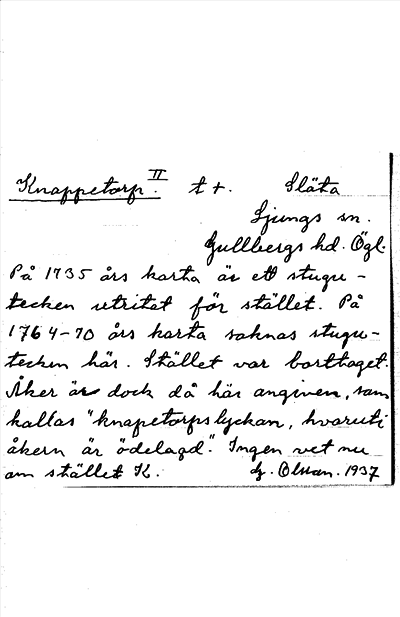 Knappetorp. II t +. Släta
Ljungs sn.
Gullbergs hd. Ögl.
På 1735 års karta är ett stugu-
tecken utritat för stället. På
1764-70 års karta saknas stugu-
tecken här. Stället var borttaget.
Åker är dock då här angiven, som
kallas "knapetorpslyckan, hvaruti
åkern är ödelagd". Ingen vet nu
om stället K. Olsson. 1937